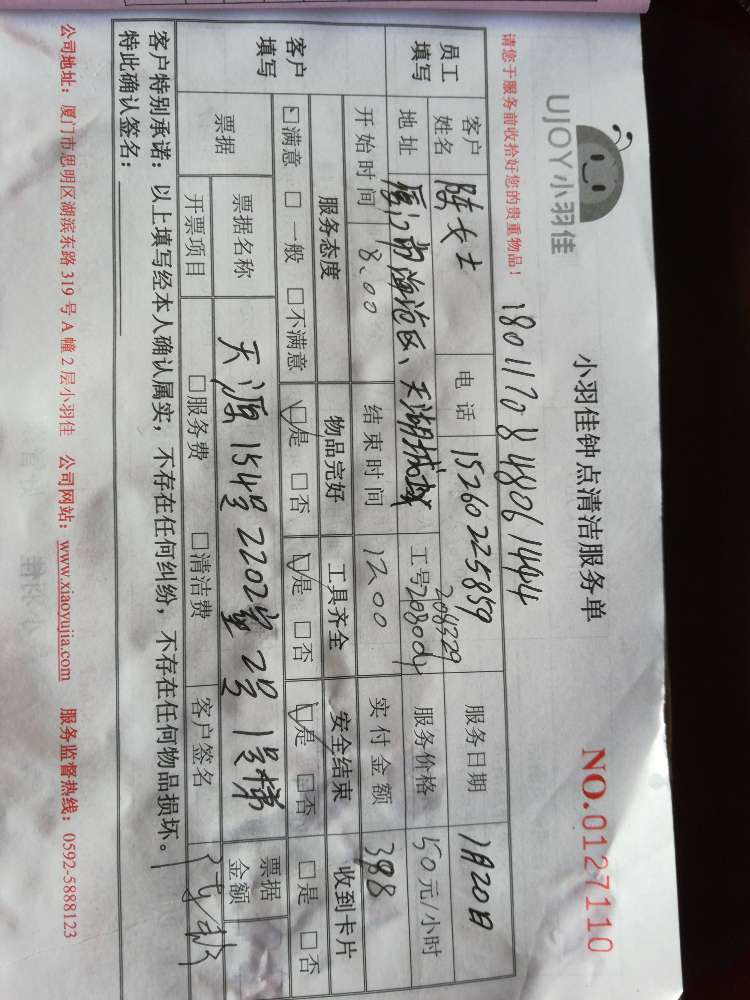 UJOY小羽佳
小羽佳钟点清洁服务单
NO.0127110
请您于服务前收拾好您的贵重物品！
18011708 48061494
员工填写 客户姓名 陈女士 电话 15260225859 服务日期 1月20日
208329
地址 厦门市海沧区、天湖城 工号 服务价格 50元/小时
开始时间 8.00 结束时间 12.00 实付金额 398
客户填写 服务态度 物品完好 工具齐全 安全结束 收到卡片
☑满意 □一般 □不满意 ☑是 □否 ☑是 □否 ☑是 □否 □是 □否
票据 票据名称 天源154号2202室 2号 1号梯 票据金额
开票项目 □服务费 □清洁费 客户签名
客户特别承诺：以上填写经本人确认属实，不存在任何纠纷，不存在任何物品损坏。
特此确认签名：
公司地址：厦门市思明区湖滨东路 319 号 A 幢 2 层小羽佳 公司网站：www.xiaoyujia.com 服务监督热线：0592-5888123